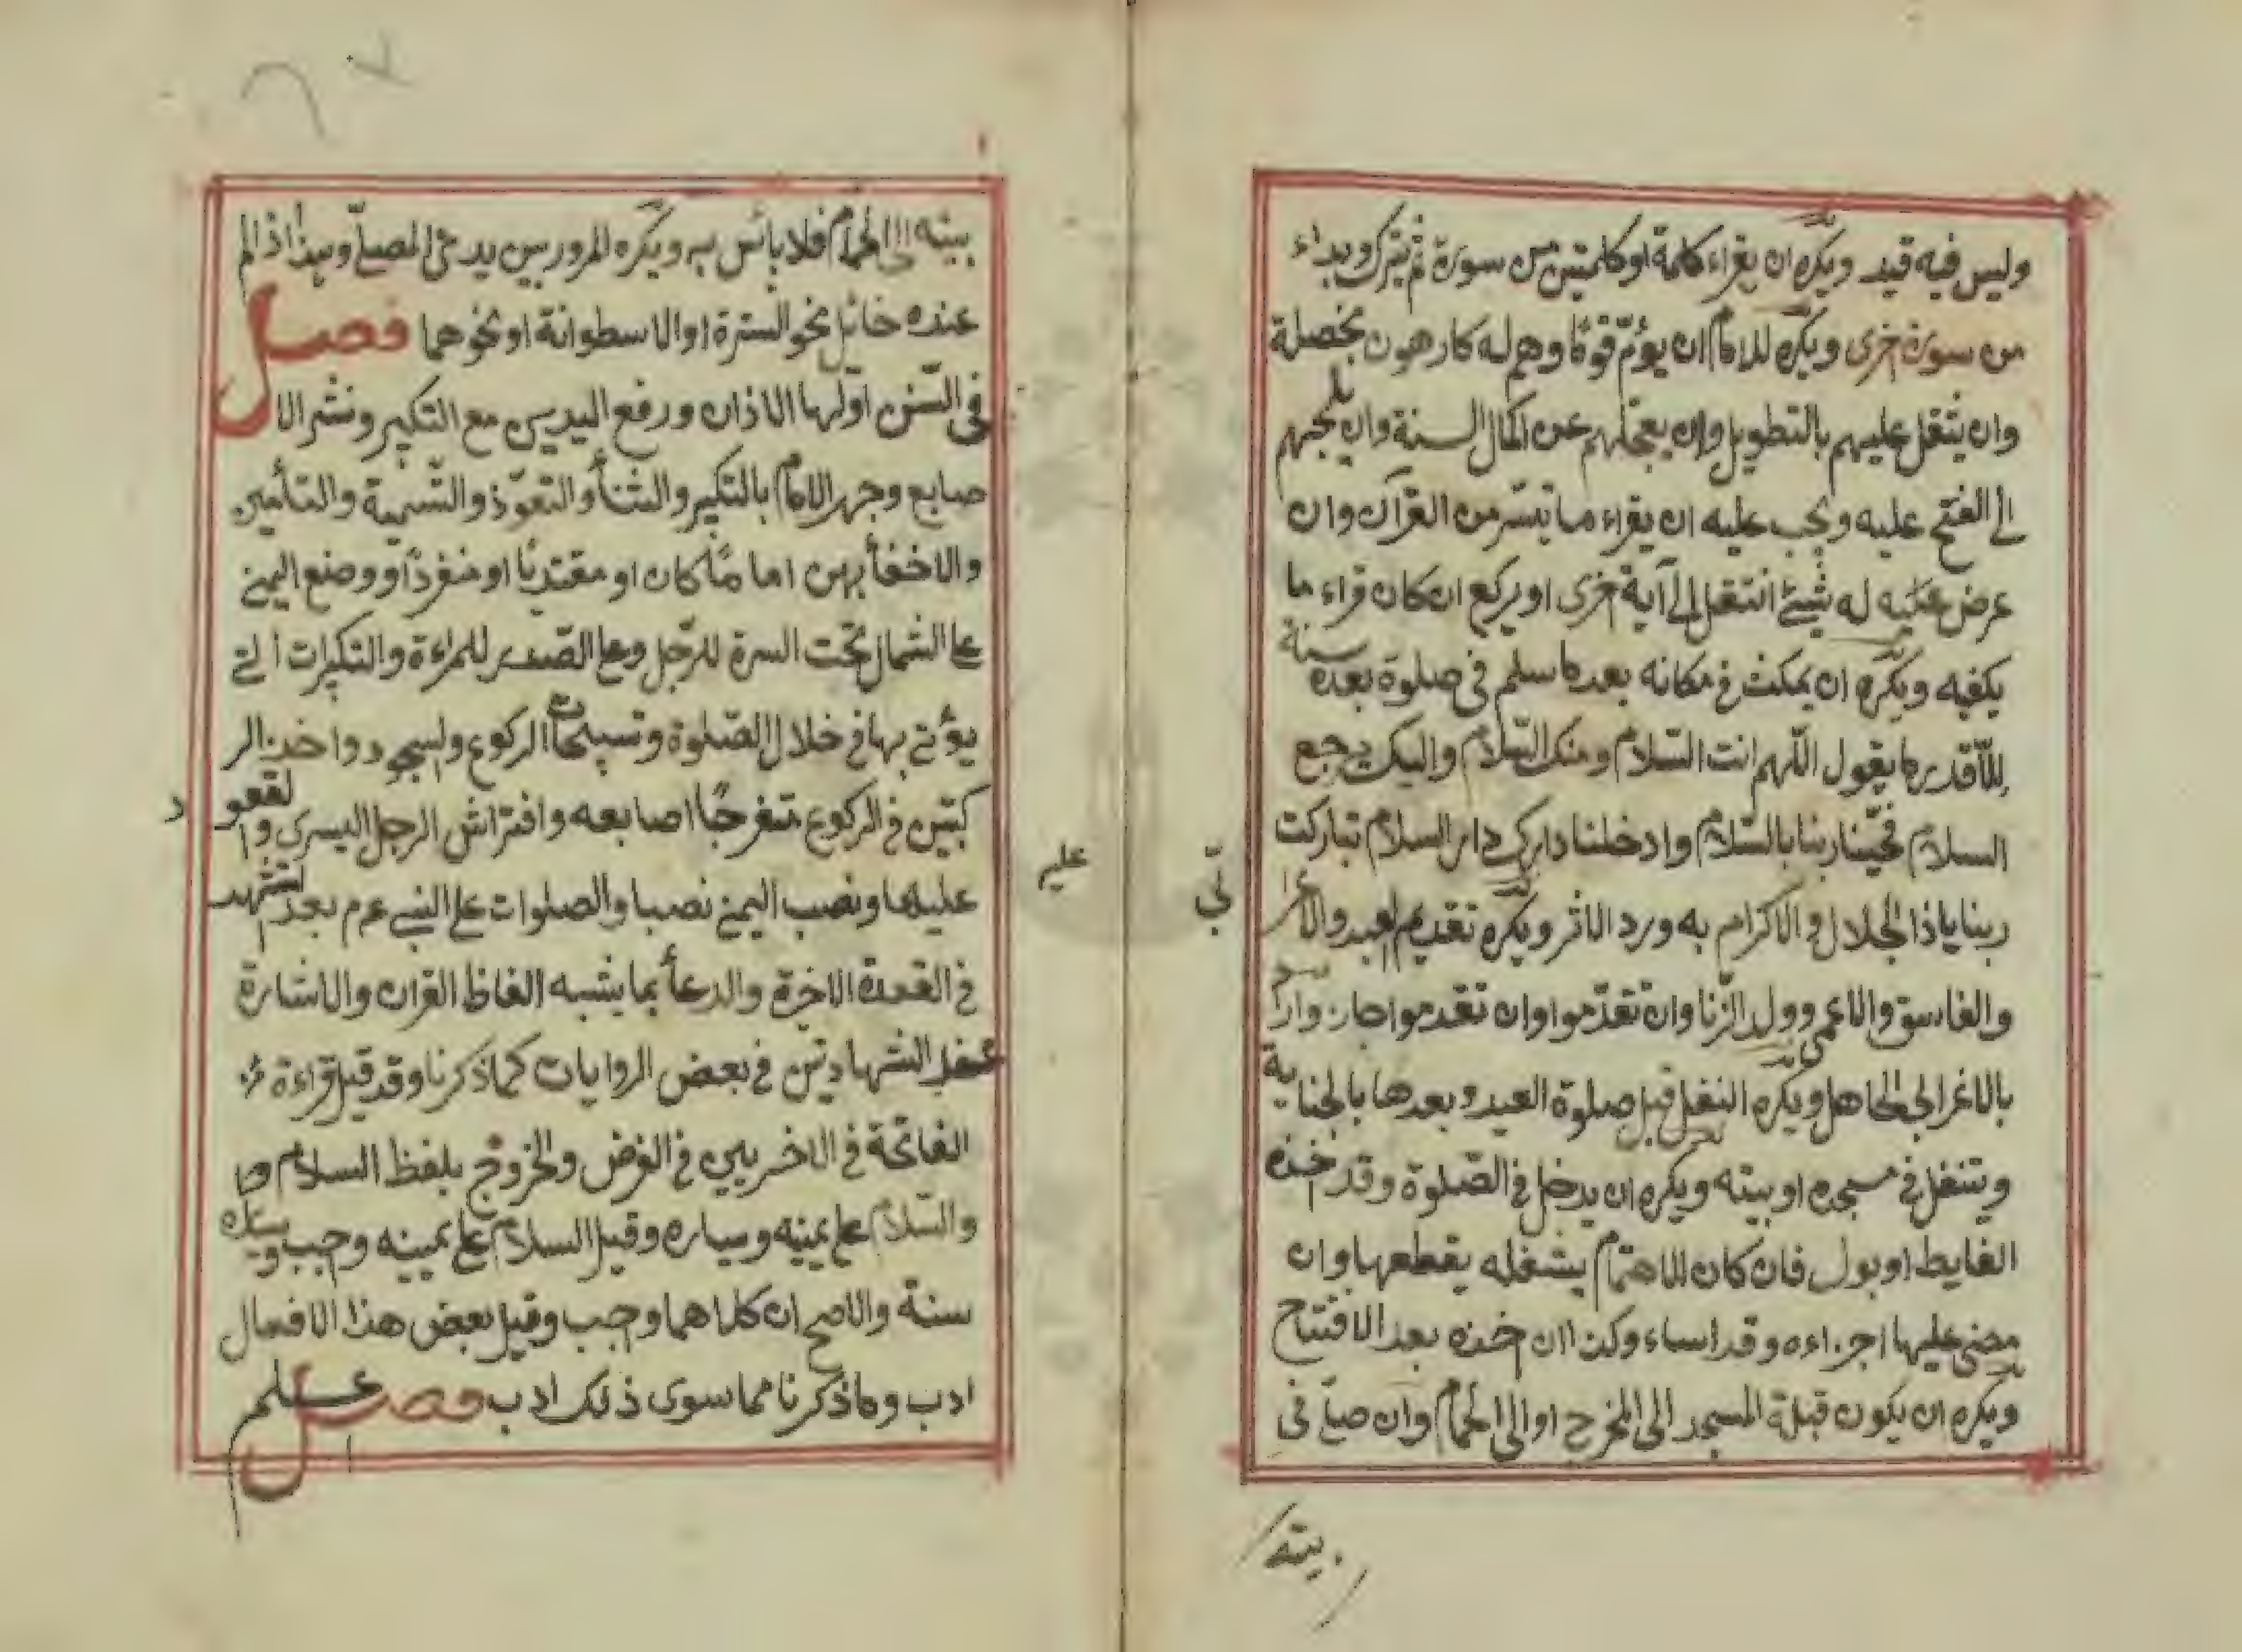 وليس فيه قيد ويكره ان يقراء كلمة او كلمتين من سورة ثم يترك وبداء
من سورة اخرى ويكره للامام ان يؤمّ قومًا وهم له كارهون بخصلة
وان يثقل عليهم بالتطويل وان يعجلهم عن اكمال السنة وان يلجئهم
الى الفتح عليه ويجب عليه ان يقراء ما تيسّر من القرآن وان
عرض عليه له شيئ انتقل الى آية اخرى او يركع ان كان قراء ما
يكفيه ويكره ان يمكث فى مكانه بعد ما سلم فى صلوة بعده سنة
الّا قدر ما يقول اللّهم انت السّلام ومنك السّلام واليك يرجع
السلام فحيّنا ربنا بالسّلام وادخلنا دارك دار السلام تباركت
ربنا يا ذا الجلال والاكرام به ورد الاثر ويكره تقديم العبد والاعرا
بيّ
والفاسق والاعمى وولد الزّنا وان تقدّموا وان تقدموا جاز واراد
بالاعرابى الجاهل ويكره النفل قبل صلوة العيد وبعدها بالجناية
ويتنفل فى مسجده او بيته ويكره ان يدخل فى الصّلوة وقد اخذه
الغايط او بول فان كان الاهتمام يشغله يقطعها وان
مضى عليها اجزاءه وقد اساء وكذا ان اخذه بعد الافتتاح
ويكره ان يكون قبلة المسجد الى المخرج او الى الحمام وان صلّى فى
بيته
بيته الى الحمام فلا بائس به ويكره المرور بين يدى المصلّى وهذا اذا لم
عنده حائل نحو السترة او الاسطوانة او نحوهما فصل
فى السّنن اوّلها الاذان ورفع اليدين مع التكبير ونشر الا
صابع وجهر الامام بالتكبير والثنأ والتعوّذ والتّسمية والتأمين
والاخفأ بهن اماما كان او مقتديًا او منفردًا ووضع اليمنى
على الشمال تحت السرة للرّجل وعلى الصّدر للمراءة والتكبيرات التى
يؤتى بها فى خلال الصّلوة وتسبيحات الركوع والسجود واخذ الر
كبتين فى الركوع متفرجًا اصابعه وافتراش الرجل اليسرى والقعود
عليها ونصب اليمنى نصبا والصلوات على النبى عم بعد التشهد
عليه
فى القعدة الاخرة والدعأ بما يشبه الفاظ القران والاشارة
عند الشهادتين فى بعض الروايات كما ذكرنا وقد قيل قراءة
الفاتحة فى الاخريين فى الفرض والخروج بلفظ السلام
والسّلام على يمينه ويساره وقيل السلام على يمينه واجب ويساره
سنة والاصح ان كلاهما واجب وقيل بعض هذا الافعال
ادب وما ذكرنا مما سوى ذلك ادب فصل علم